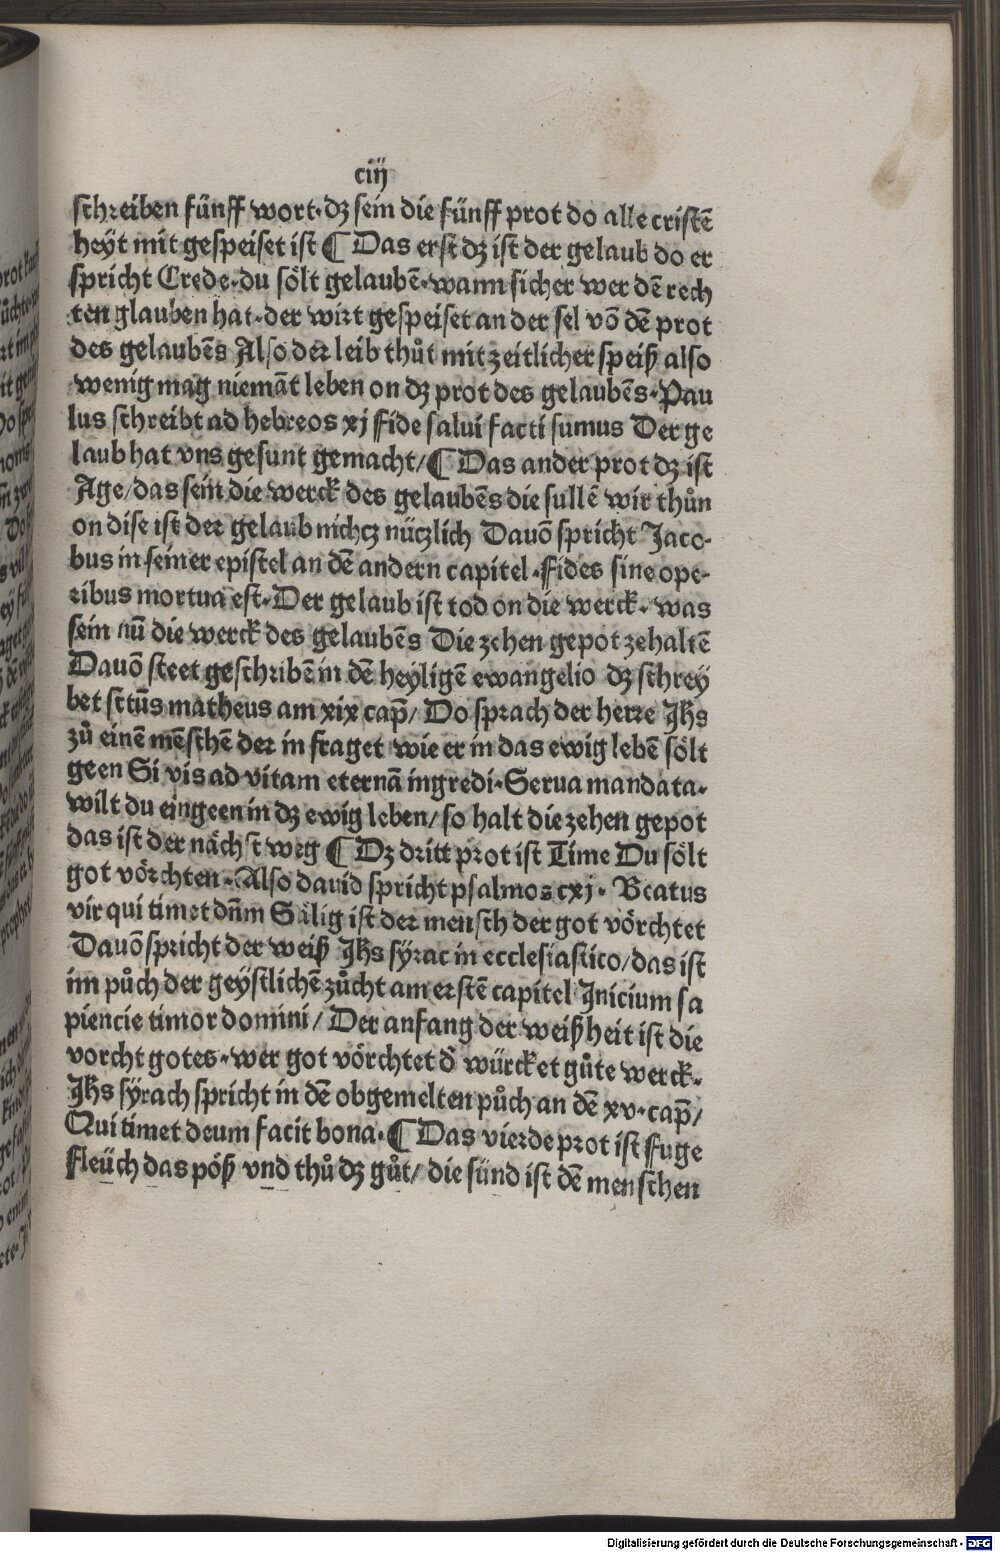 ciij
schreiben fünff wort·dʒ sein die fünff prot do alle cristē
heÿt mit gespeiset ist ¶ Das erst dʒ ist der gelaub do er
spricht Crede·du sölt gelaubē·wann sicher wer dē rech
ten glauben hat·der wirt gespeiset an der sel vō dē prot
des gelaubēs Also der leib thůt mit zeitlicher speiß also
wenig mag niemāt leben on dʒ prot des gelaubēs·Pau
lus schreibt ad hebreos xj fide salui facti sumus Der ge
laub hat vns gesunt gemacht/¶ Das ander prot dʒ ist
Age/das sein die werck des gelaubēs die sullē wir thůn
on dise ist der gelaub nichcʒ nüczlich Dauō spricht Jaco-
bus in seiner epistel an dē andern capitel·Fides sine ope-
ribus mortua est·Der gelaub ist tod on die werck· was
sein nū die werck des gelaubēs Die zehen gepot zehaltē
Dauō steet geschribē in dē heyligē ewangelio dʒ schrey
bet sctūs matheus am xix cap̄/ Do sprach der herre Jhs
zů einē mēschē der in fraget wie er in das ewig lebē sölt
geen Si vis ad vitam eternā ingredi·Serua mandata·
wilt du eingeen in dʒ ewig leben/ so halt die zehen gepot
das ist der nächst weg ¶ Dʒ dritt prot ist Time Du sölt
got vörchten·Also dauid spricht psalmos cxj· Beatus
vir qui timet dn̄m Sälig ist der mensch der got vörchtet
Dauō spricht der weiß Jhs syrac in ecclesiastico/das ist
im půch der geystlichē zůcht am erstē capitel Jnicium sa
piencie timor domini/ Der anfang der weißheit ist die
vorcht gotes·wer got vörchtet d̄ würcket gůte werck·
Jhs syrach spricht in dē obgemelten půch an dē xv·cap̄/
Qui timet deum facit bona·¶ Das vierde prot ist Fuge
Fleüch das pöß vnd thů dʒ gůt/ die sünd ist dē menschen
Digitalisierung gefördert durch die Deutsche Forschungsgemeinschaft - DFG